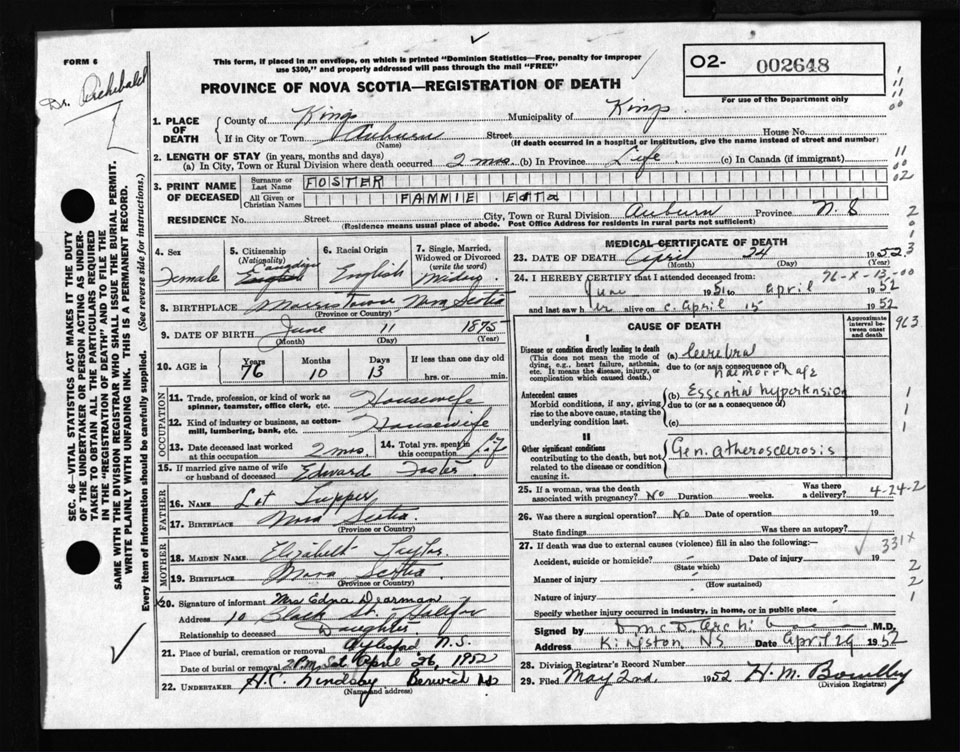 FORM 6
Dr. Archibald
This form, if placed in an envelope, on which is printed "Dominion Statistics—Free, penalty for improper
use $300," and properly addressed will pass through the mail "FREE"
O2- 002648
For use of the Department only
PROVINCE OF NOVA SCOTIA—REGISTRATION OF DEATH
1. PLACE OF DEATH
County of Kings Municipality of Kings
If in City or Town Auburn Street House No.
(Name) (If death occurred in a hospital or institution, give the name instead of street and number)
2. LENGTH OF STAY (in years, months and days)
(a) In City, Town or Rural Division where death occurred 2 mos. (b) In Province Life (c) In Canada (if immigrant)
3. PRINT NAME OF DECEASED
Surname or Last Name FOSTER
All Given or Christian Names FANNIE Etta
RESIDENCE No. Street City, Town or Rural Division Auburn Province N.S
(Residence means usual place of abode. Post Office Address for residents in rural parts not sufficient)
4. Sex Female
5. Citizenship (Nationality) Canadian English
6. Racial Origin English
7. Single, Married, Widowed or Divorced (write the word) Widow
8. BIRTHPLACE Morristown Nova Scotia
(Province or Country)
9. DATE OF BIRTH June 11 1875
(Month) (Day) (Year)
10. AGE in Years 76 Months 10 Days 13 If less than one day old hrs. or min.
OCCUPATION
11. Trade, profession, or kind of work as spinner, teamster, office clerk, etc. Housewife
12. Kind of industry or business, as cotton-mill, lumbering, bank, etc. Housewife
13. Date deceased last worked at occupation 2 mos.
14. Total yrs. spent in this occupation Life
15. If married give name of wife or husband of deceased Edward Foster
FATHER
16. NAME Lot Tupper
17. BIRTHPLACE Nova Scotia
(Province or Country)
MOTHER
18. MAIDEN NAME Elizabeth Taylor
19. BIRTHPLACE Nova Scotia
(Province or Country)
20. Signature of informant Mrs Edna Dearman
Address 10 St. Halifax
Relationship to deceased Daughter
21. Place of burial, cremation or removal Aylesford N.S.
Date of burial or removal 2 P.M. Sat April 26, 1952
22. UNDERTAKER H.C. Lindsay Berwick NS
(Name and address)
MEDICAL CERTIFICATE OF DEATH
23. DATE OF DEATH April 24 1952
(Month) (Day) (Year)
76-X-13-00
24. I HEREBY CERTIFY that I attended deceased from:
June 1951 to April 1952
and last saw her alive on c. April 15 1952
CAUSE OF DEATH
Approximate interval between onset and death
I
Disease or condition directly leading to death
(This does not mean the mode of dying, e.g., heart failure, asthenia, etc. It means the disease, injury, or complication which caused death.)
(a) Cerebral
due to (or as a consequence of)
haemorrhage
Antecedent causes
Morbid conditions, if any, giving rise to the above cause, stating the underlying condition last.
(b) Essential hypertension
due to (or as a consequence of)
(c)
II
Other significant conditions
contributing to the death, but not related to the disease or condition causing it.
Gen. atherosclerosis
25. If a woman, was the death associated with pregnancy? No Duration weeks. Was there a delivery?
4-24-2
26. Was there a surgical operation? No Date of operation 19
State findings Was there an autopsy?
27. If death was due to external causes (violence) fill in also the following:—
331x
Accident, suicide or homicide? Date of injury 19
(State which)
Manner of injury
(How sustained)
Nature of injury
Specify whether injury occurred in industry, in home, or in public place
Signed by D McD. Archibald M.D.
Address Kingston, NS Date April 29 1952
28. Division Registrar's Record Number
29. Filed May 2nd, 1952 H.M.
(Division Registrar)
963
SEC. 46—VITAL STATISTICS ACT MAKES IT THE DUTY
OF THE UNDERTAKER OR PERSON ACTING AS UNDER-
TAKER TO OBTAIN ALL THE PARTICULARS REQUIRED
IN THE "REGISTRATION OF DEATH" AND TO FILE THE
SAME WITH THE DIVISION REGISTRAR WHO SHALL ISSUE THE BURIAL PERMIT.
WRITE PLAINLY WITH UNFADING INK. THIS IS A PERMANENT RECORD.
Every item of information should be carefully supplied. (See reverse side for instructions.)